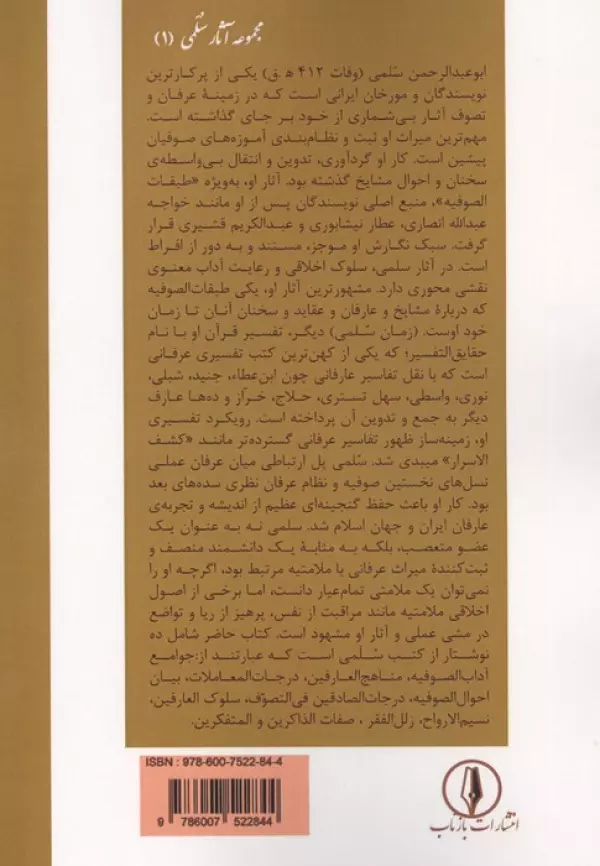 مجموعه آثار سُلمی (۱)
ابوعبدالرحمن سُلمی (وفات ۴۱۲ ه‍.ق) یکی از پرکارترین
نویسندگان و مورخان ایرانی است که در زمینهٔ عرفان و
تصوف آثار بی‌شماری از خود بر جای گذاشته است.
مهم‌ترین میراث او ثبت و نظام‌بندی آموزه‌های صوفیان
پیشین است. کار او گردآوری، تدوین و انتقال بی‌واسطه‌ی
سخنان و احوال مشایخ گذشته بود. آثار او، به‌ویژه «طبقات
الصوفیه»، منبع اصلی نویسندگان پس از او مانند خواجه
عبدالله انصاری، عطار نیشابوری و عبدالکریم قشیری قرار
گرفت. سبک نگارش او موجز، مستند و به دور از افراط
است. در آثار سلمی، سلوک اخلاقی و رعایت آداب معنوی
نقشی محوری دارد. مشهورترین آثار او، یکی طبقات‌الصوفیه
که دربارهٔ مشایخ و عارفان و عقاید و سخنان آنان تا زمان
خود اوست. (زمان سُلمی) دیگر، تفسیر قرآن او با نام
حقایق‌التفسیر؛ که یکی از کهن‌ترین کتب تفسیری عرفانی
است که با نقل تفاسیر عارفانی چون ابن‌عطاء، جنید، شبلی،
نوری، واسطی، سهل تستری، حلاج، خرّاز و ده‌ها عارف
دیگر به جمع و تدوین آن پرداخته است. رویکرد تفسیری
او، زمینه‌ساز ظهور تفاسیر عرفانی گسترده‌تر مانند «کشف
الاسرار» میبدی شد. سُلمی پل ارتباطی میان عرفان عملی
نسل‌های نخستین صوفیه و نظام عرفان نظری سده‌های بعد
بود. کار او باعث حفظ گنجینه‌ای عظیم از اندیشه و تجربه‌ی
عارفان ایران و جهان اسلام شد. سلمی نه به عنوان یک
عضو متعصب، بلکه به مثابهٔ یک دانشمند منصف و
ثبت‌کنندهٔ میراث عرفانی با ملامتیه مرتبط بود، اگرچه او را
نمی‌توان یک ملامتی تمام‌عیار دانست، اما برخی از اصول
اخلاقی ملامتیه مانند مراقبت از نفس، پرهیز از ریا و تواضع
در مشی عملی و آثار او مشهود است. کتاب حاضر شامل ده
نوشتار از کتب سُلَمی است که عبارتند از:جوامع
آداب‌الصوفیه، مناهج‌العارفین، درجات‌المعاملات، بیان
احوال‌الصوفیه، درجات‌الصادقین فی‌التصوّف، سلوک العارفین،
نسیم‌الارواح، زلل‌الفقر ، صفات الذاکرین و المتفکرین.
ISBN : 978-600-7522-84-4
9 786007 522844
انتشارات بازتاب